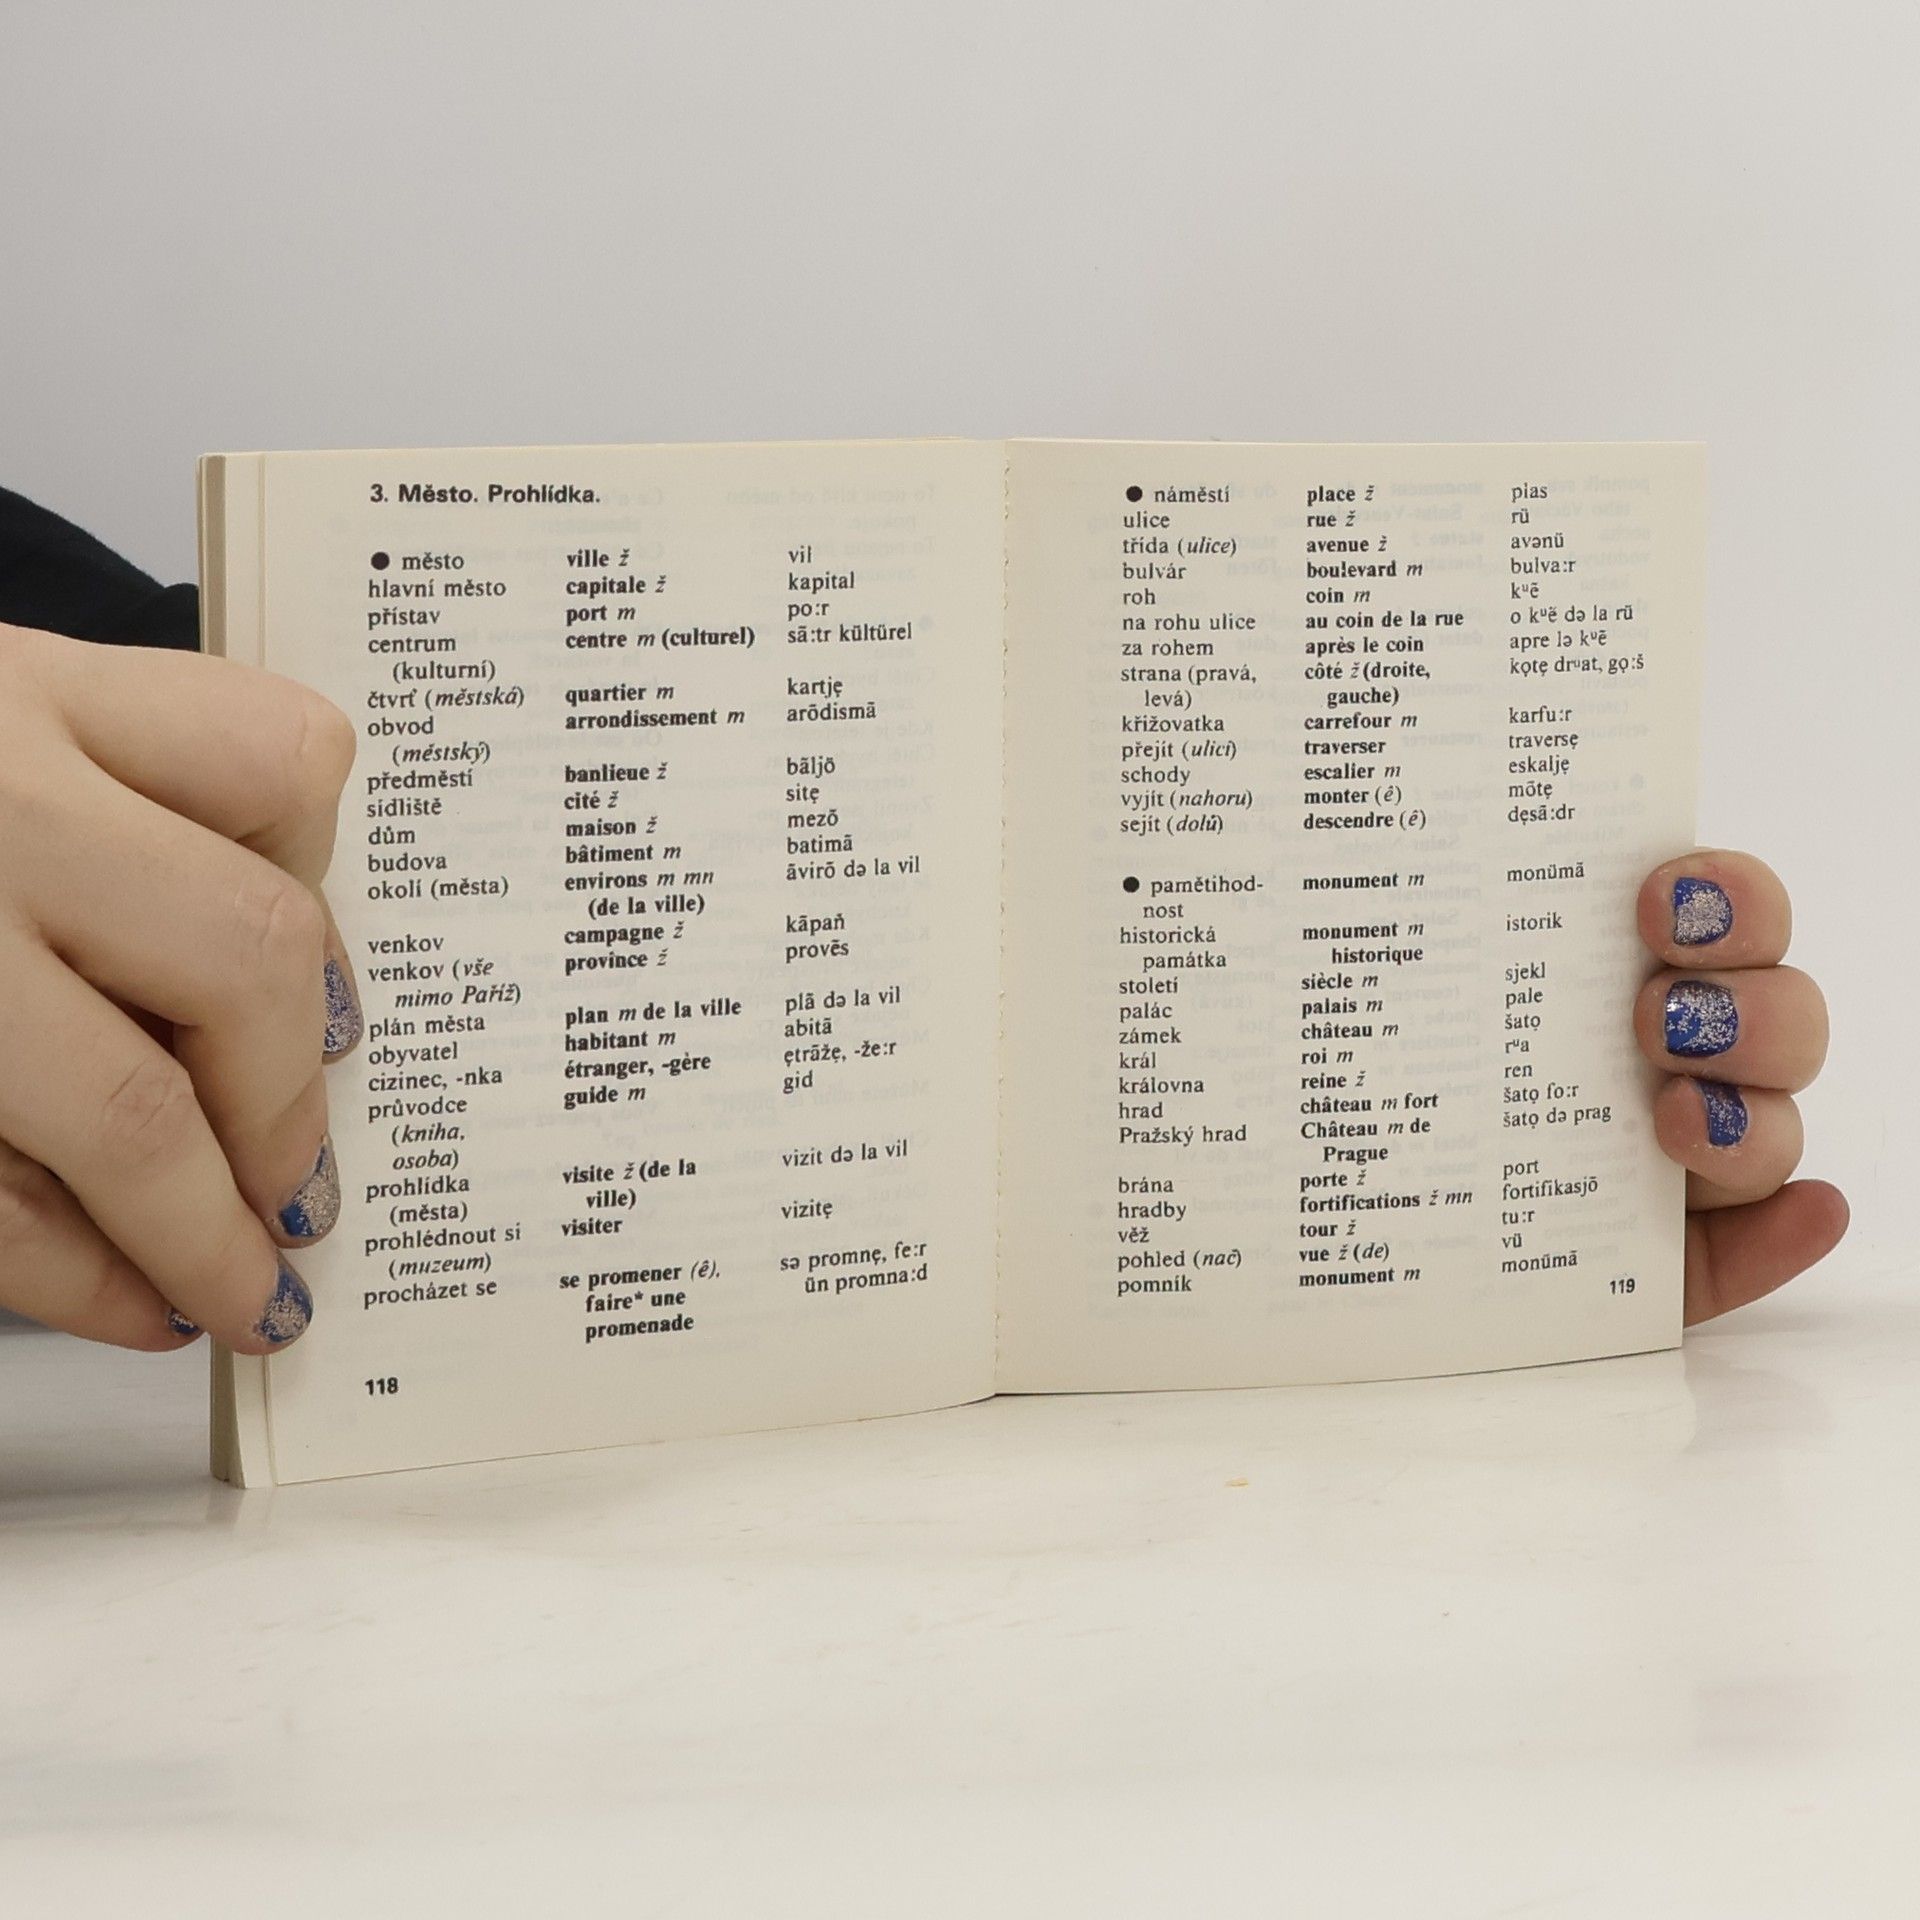 3. Město. Prohlídka.
● město ville ž vil
hlavní město capitale ž kapital
přístav port m po:r
centrum centre m (culturel) sã:tr kültürel
(kulturní)
čtvrť (městská) quartier m kartję
obvod arrondissement m arõdismã
(městský)
předměstí banlieue ž bãljö
sídliště cité ž sitę
dům maison ž mezõ
budova bâtiment m batimã
okolí (města) environs m mn ãvirõ də la vil
(de la ville)
venkov campagne ž kãpaň
venkov (vše province ž provẽs
mimo Paříž)
plán města plan m de la ville plã də la vil
obyvatel habitant m abitã
cizinec, -nka étranger, -gère ętrãžę, -že:r
průvodce guide m gid
(kniha,
osoba)
prohlídka visite ž (de la vizit də la vil
(města) ville)
prohlédnout si visiter vizitę
(muzeum)
procházet se se promener (ê), sə promnę, fe:r
faire* une ün promna:d
promenade
118
● náměstí place ž plas
ulice rue ž rü
třída (ulice) avenue ž avənü
bulvár boulevard m bulva:r
roh coin m kᵘẽ
na rohu ulice au coin de la rue o kᵘẽ də la rü
za rohem après le coin apre lə kᵘẽ
strana (pravá, côté ž (droite, kǫtę drᵘat, gǫ:š
levá) gauche)
křižovatka carrefour m karfu:r
přejít (ulici) traverser traversę
schody escalier m eskalję
vyjít (nahoru) monter (ê) mõtę
sejít (dolů) descendre (ê) dęsã:dr
● pamětihod- monument m monümã
nost
historická monument m istorik
památka historique
století siècle m sjekl
palác palais m pale
zámek château m šatǫ
král roi m rᵘa
královna reine ž ren
hrad château m fort šatǫ fo:r
Pražský hrad Château m de šatǫ də prag
Prague
brána porte ž port
hradby fortifications ž mn fortifikasjõ
věž tour ž tu:r
pohled (nač) vue ž (de) vü
pomník monument m monümã
119